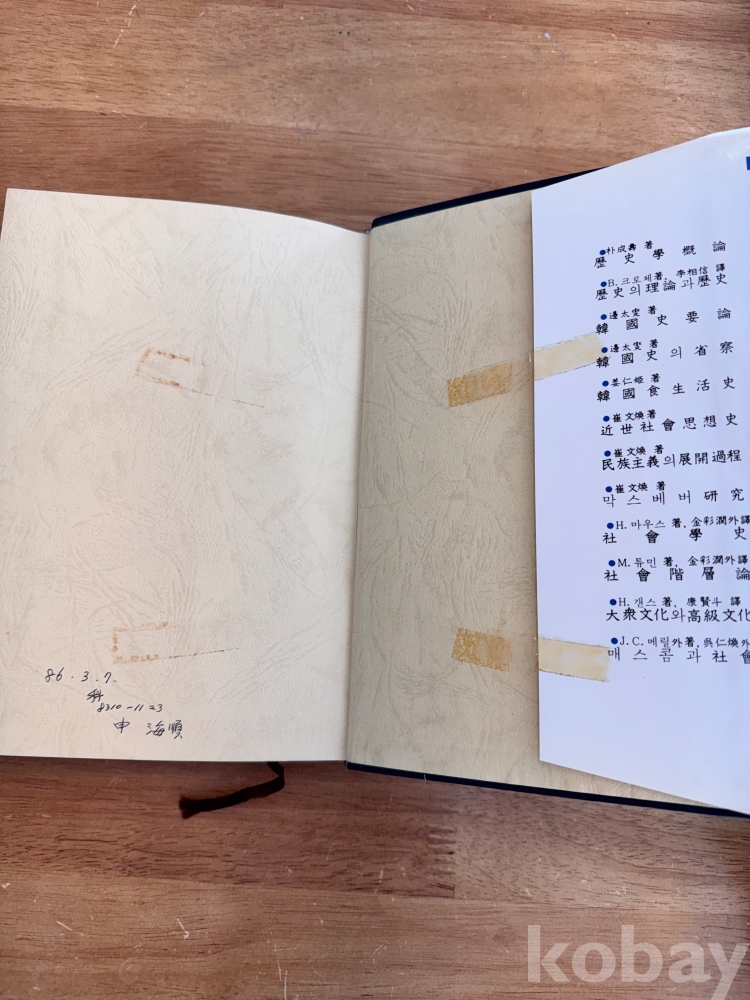 86. 3. 7.
科
8310-1123
申 海順
●朴成壽 著
歷史學概論
●B. 크로체著, 李相信 譯
歷史의理論과歷史
●邊太燮 著
韓國史要論
●邊太燮 著
韓國史의省察
●姜仁姬 著
韓國食生活史
●崔文煥 著
近世社會思想史
●崔文煥 著
民族主義의展開過程
●崔文煥 著
막스베버硏究
●H. 마우스 著, 金彩潤外譯
社會學史
●M. 튜민 著, 金彩潤外譯
社會階層論
●H. 갠스 著, 康賢斗 譯
大衆文化와高級文化
●J. C. 메릴外著, 吳仁煥外
매스콤과社會
kobay